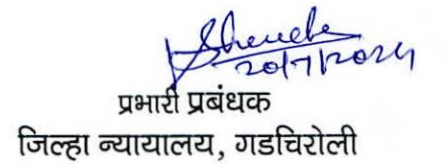 20/7/2024
प्रभारी प्रबंधक
जिल्हा न्यायालय, गडचिरोली